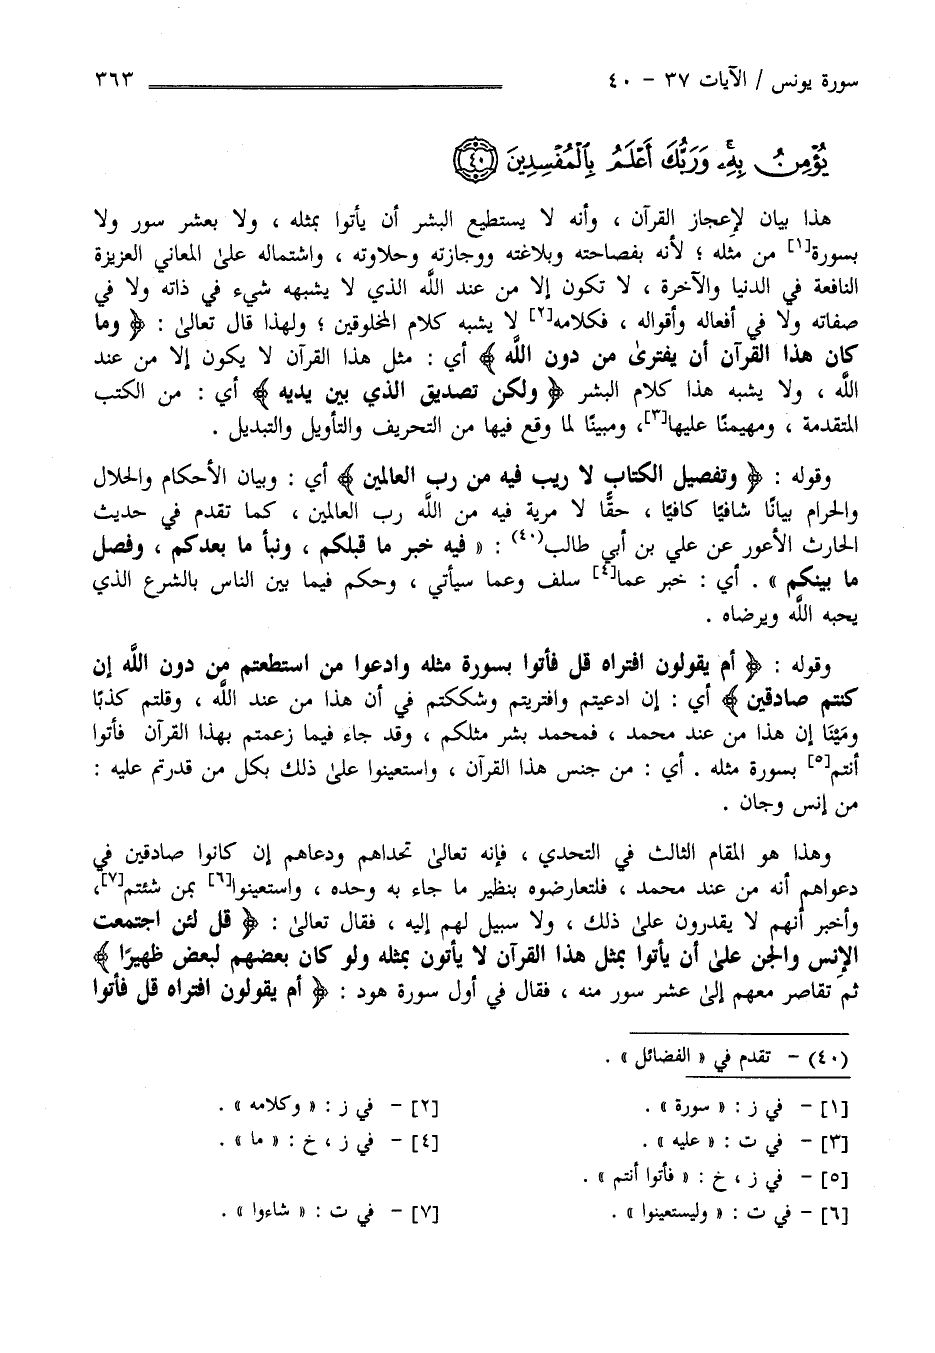 سورة يونس / الآيات ٣٧ - ٤٠ ٣٦٣
يُؤْمِنُ بِهِۦ وَرَبُّكَ أَعْلَمُ بِالْمُفْسِدِينَ ٤٠
هذا بيان لإعجاز القرآن ، وأنه لا يستطيع البشر أن يأتوا بمثله ، ولا بعشر سور ولا
بسورة[١] من مثله ؛ لأنه بفصاحته وبلاغته ووجازته وحلاوته ، واشتماله على المعاني العزيزة
النافعة في الدنيا والآخرة ، لا تكون إلا من عند الله الذي لا يشبهه شيء في ذاته ولا في
صفاته ولا في أفعاله وأقواله ، فكلامه[٢] لا يشبه كلام المخلوقين ؛ ولهذا قال تعالى : ﴿ وما
كان هذا القرآن أن يفترى من دون الله ﴾ أي : مثل هذا القرآن لا يكون إلا من عند
الله ، ولا يشبه هذا كلام البشر ﴿ ولكن تصديق الذي بين يديه ﴾ أي : من الكتب
المتقدمة ، ومهيمنًا عليها[٣]، ومبينًا لما وقع فيها من التحريف والتأويل والتبديل .
وقوله : ﴿ وتفصيل الكتاب لا ريب فيه من رب العالمين ﴾ أي : وبيان الأحكام والحلال
والحرام بيانًا شافيًا كافيًا ، حقًّا لا مرية فيه من الله رب العالمين ، كما تقدم في حديث
الحارث الأعور عن علي بن أبي طالب(٤٠) : « فيه خبر ما قبلكم ، ونبأ ما بعدكم ، وفصل
ما بينكم » . أي : خبر عما[٤] سلف وعما سيأتي ، وحكم فيما بين الناس بالشرع الذي
يحبه الله ويرضاه .
وقوله : ﴿ أم يقولون افتراه قل فأتوا بسورة مثله وادعوا من استطعتم من دون الله إن
كنتم صادقين ﴾ أي : إن ادعيتم وافتريتم وشككتم في أن هذا من عند الله ، وقلتم كذبًا
ومَيْنًا إن هذا من عند محمد ، فمحمد بشر مثلكم ، وقد جاء فيما زعمتم بهذا القرآن فأتوا
أنتم[٥] بسورة مثله . أي : من جنس هذا القرآن ، واستعينوا على ذلك بكل من قدرتم عليه :
من إنس وجان .
وهذا هو المقام الثالث في التحدي ، فإنه تعالى تحداهم ودعاهم إن كانوا صادقين في
دعواهم أنه من عند محمد ، فلتعارضوه بنظير ما جاء به وحده ، واستعينوا[٦] بمن شئتم[٧]،
وأخبر أنهم لا يقدرون على ذلك ، ولا سبيل لهم إليه ، فقال تعالى : ﴿ قل لئن اجتمعت
الإنس والجن على أن يأتوا بمثل هذا القرآن لا يأتون بمثله ولو كان بعضهم لبعض ظهيرًا ﴾
ثم تقاصر معهم إلى عشر سور منه ، فقال في أول سورة هود : ﴿ أم يقولون افتراه قل فأتوا
(٤٠) - تقدم في « الفضائل » .
[١] - في ز : « سورة » . [٢] - في ز : « وكلامه » .
[٣] - في ت : « عليه » . [٤] - في ز ، خ : « ما » .
[٥] - في ز ، خ : « فأتوا أنتم » .
[٦] - في ت : « وليستعينوا » . [٧] - في ت : « شاءوا » .